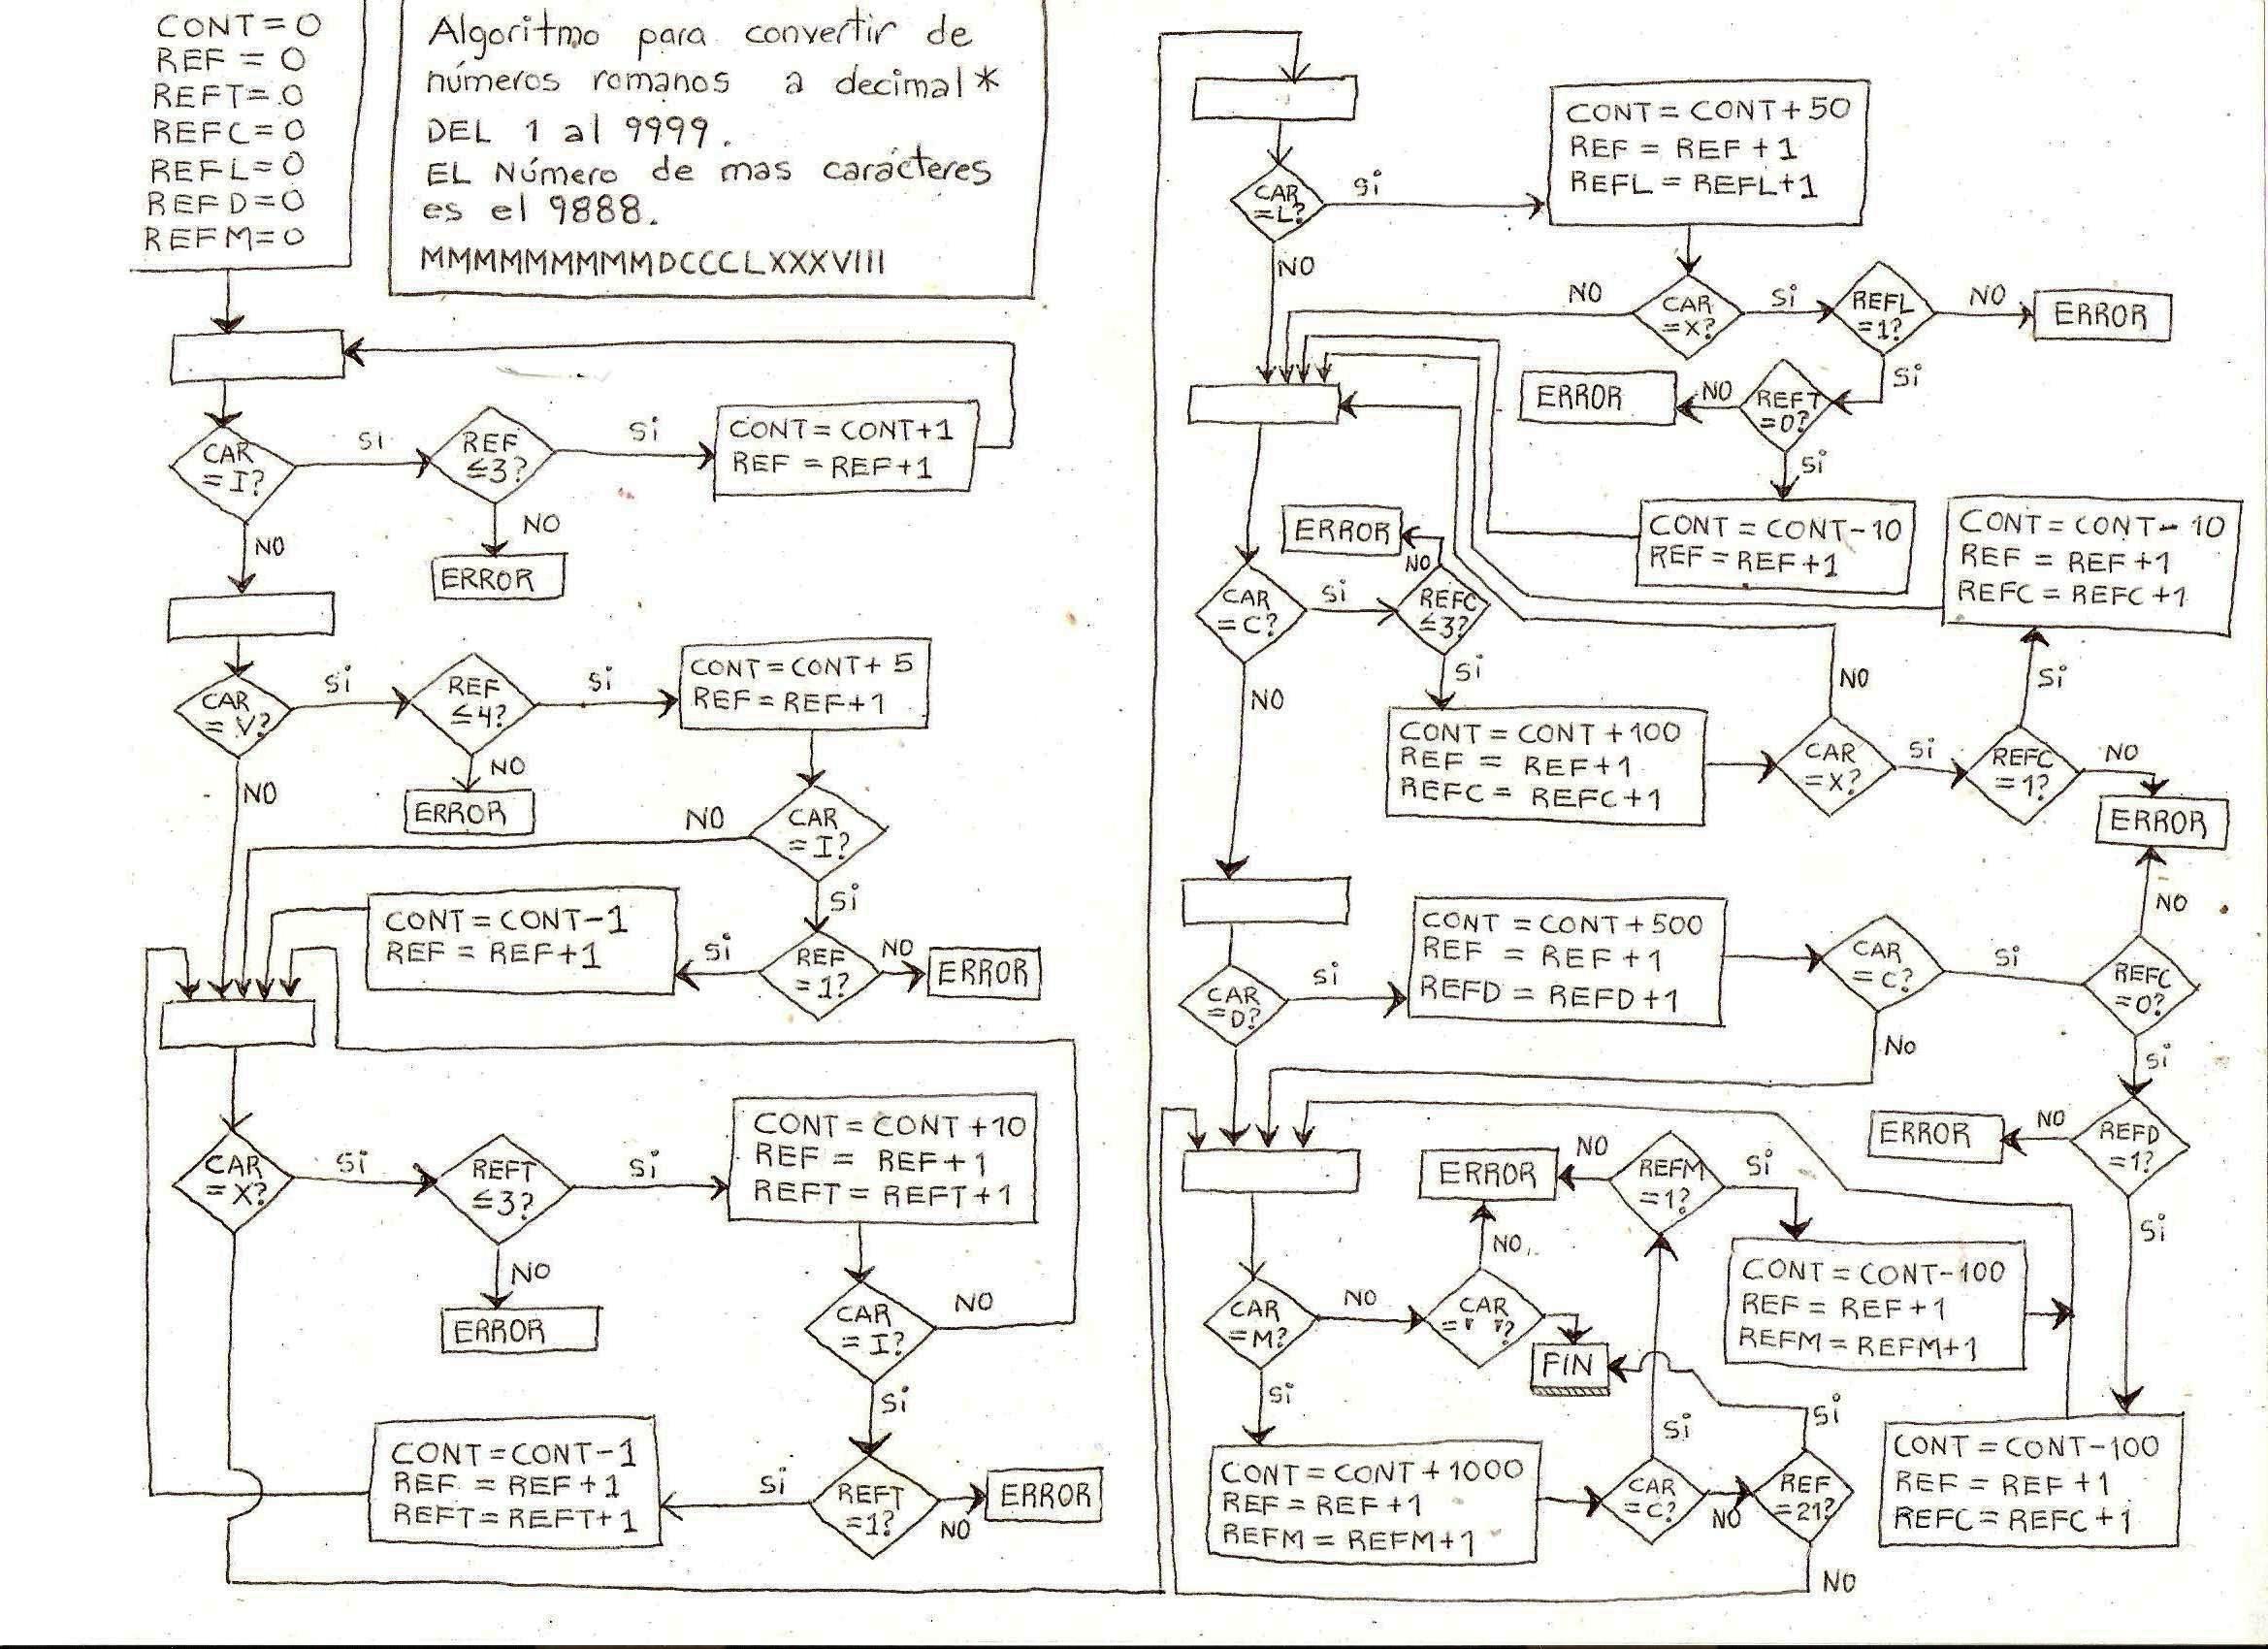 CONT = 0
REF = 0
REFT = 0
REFC = 0
REFL = 0
REFD = 0
REFM = 0
Algoritmo para convertir de
números romanos a decimal *
DEL 1 al 9999.
EL Número de mas carácteres
es el 9888.
MMMMMMMMMDCCCLXXXVIII
CAR
= I?
Si
REF
≤3?
Si
CONT = CONT+1
REF = REF+1
NO
ERROR
NO
CAR
= V?
Si
REF
≤4?
Si
CONT = CONT + 5
REF = REF+1
NO
ERROR
NO
CAR
= I?
NO
Si
REF
=1?
NO
ERROR
Si
CONT = CONT-1
REF = REF+1
CAR
= X?
Si
REFT
≤3?
Si
CONT = CONT +10
REF = REF+1
REFT = REFT+1
NO
ERROR
CAR
= I?
NO
Si
REFT
=1?
NO
ERROR
Si
CONT = CONT-1
REF = REF+1
REFT = REFT+1
CAR
=L?
Si
CONT = CONT+50
REF = REF +1
REFL = REFL+1
NO
CAR
=X?
NO
Si
REFL
=1?
NO
ERROR
Si
REFT
=0?
NO
ERROR
Si
CONT = CONT-10
REF = REF+1
CONT = CONT- 10
REF = REF +1
REFC = REFC +1
CAR
=C?
Si
REFC
≤3?
NO
ERROR
Si
CONT = CONT +100
REF = REF+1
REFC = REFC+1
CAR
=X?
NO
Si
REFC
=1?
Si
NO
ERROR
NO
CAR
=D?
Si
CONT = CONT+500
REF = REF +1
REFD = REFD+1
CAR
=C?
No
Si
REFC
=0?
NO
Si
REFD
=1?
NO
ERROR
Si
CONT = CONT-100
REF = REF +1
REFC = REFC +1
CAR
=M?
NO
CAR
=" "?
NO
ERROR
FIN
Si
CONT = CONT +1000
REF = REF +1
REFM = REFM+1
CAR
=C?
Si
REFM
=1?
NO
Si
CONT = CONT-100
REF = REF +1
REFM = REFM+1
NO
REF
=21?
Si
NO